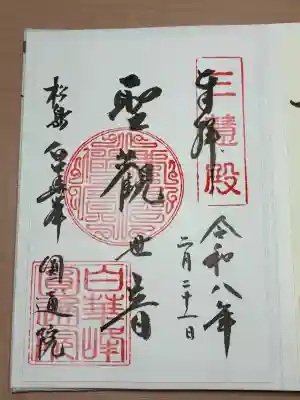 三慧殿
奉拝
令和八年
二月二十一日
聖観世音
松島 白華峰 圓通院
白華峰
圓通院